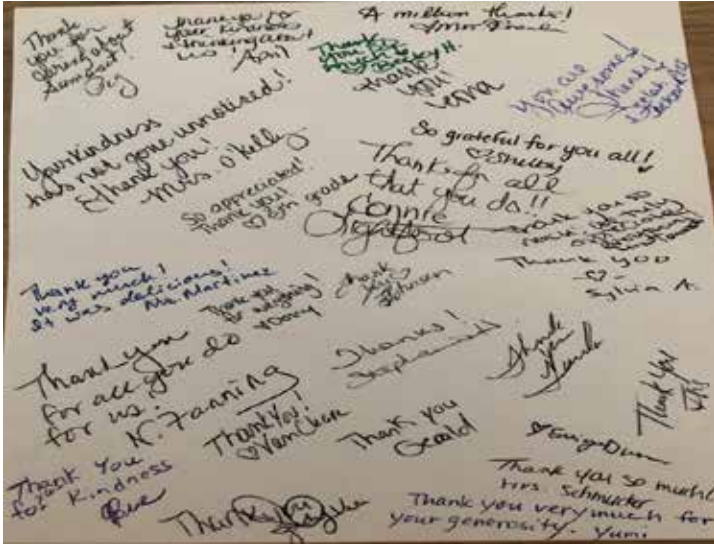 Thank
you for
caring about
Summit!
Thank you for
your kindness
& thinking about
us!
April
A million thanks!
Mrs.
Thank
You
Becky H.
Thank
you!
You are
awesome!
Thanks!
Your kindness
has not gone unnoticed!
Thank you!
Mrs. O'Kelly
So grateful for you all!
Shelby
So appreciated!
Thank you!
5th grade
Thanks for all
that you do!!
Connie
Thank you so
much. We truly
Thank you
Sylvia A.
Thank you
very much!
It was delicious!
Ms. Martinez
Thank you
for everything!
Thank
you
Johnson
Thank you
for all you do
for us.
N. Fanning
Thanks!
Stephanie
Thank
you
Thank You
Thank You!
VanCleve
Thank you
Gerald
Thank You
for your
Kindness
Thank you
Thank you so much!
Mrs. Schmucker
Thank you very much for
your generosity. Yumi